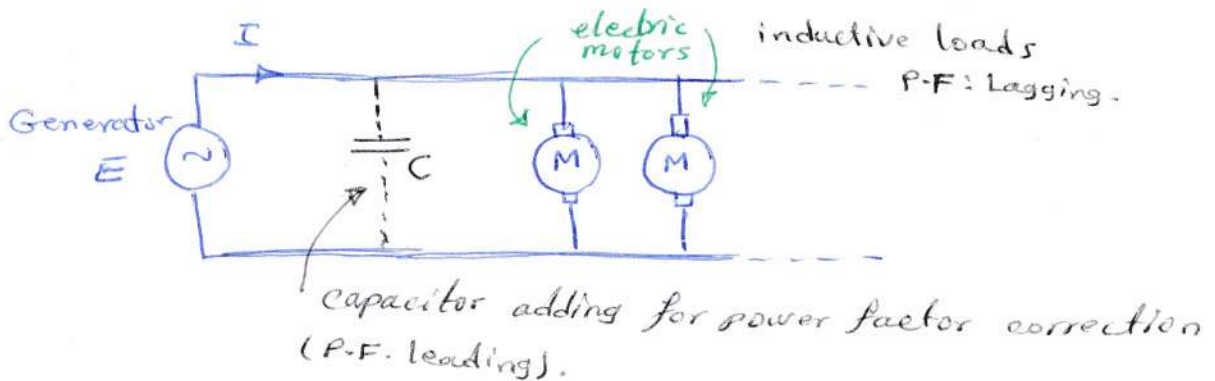 I
electric
motors
inductive loads
P.F: Lagging.
Generator
E
~
C
M
M
capacitor adding for power factor correction
(P.F. leading).